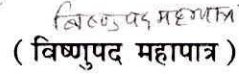 बिष्णु पद महापात्र
( विष्णुपद महापात्र )